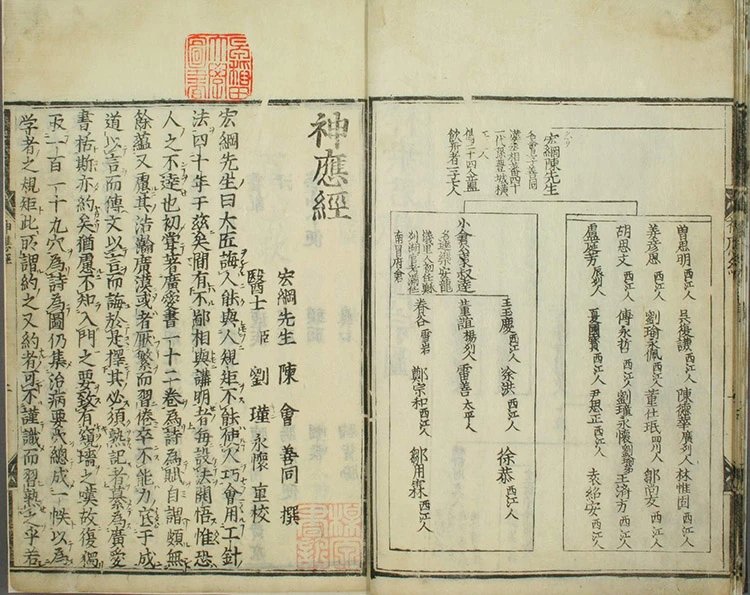 曽思明 西江人 吳復謙 西江人 陳德華 廣列人 林惟固 西江人
姜彥思 西江人 劉瑜永佩 西江人 董仕珉 四川人 鄒尚友 西江人
胡思文 西江人 傅永哲 西江人 劉瑾永懷 王濟方 西江人
盧益芳 辰列人 夏國賓 西江人 尹思正 西江人 袁紹安 西江人
宏綱陳先生
名會字善同
代孫豊城橫
傷二十四人
飲所者二十七人
王玉慶 西江人 余洪 西江人 徐恭 西江人
董誼 楊列人 雷善 太平人
春谷 雷岩 鄭宗和 西江人 鄒用霖 西江人
神應經
宏綱先生 陳會 善同 撰
醫士 劉瑾 永懷 重校
宏綱先生曰大匠誨人能與人規矩不能使人巧會用工針
法四十年于玆矣間有不鄙相與講明者每設法開悟惟恐
人之不達也初甞著廣愛書一十二卷為詩為賦自謂頗無
餘蘊又慮其浩瀚廣漠或者厭繁而習倦卒不能力于成
道以言而傳文以言而誨於是擇其必須熟記者纂為廣愛
書括斯亦約矣猶慮不知入門之要致有窺墻之嘆故復獨
取一百一十九穴為詩為圖仍集治病要穴總成一帙以為
學者之規矩此所謂約之又約者可不謹識而習熟之乎若